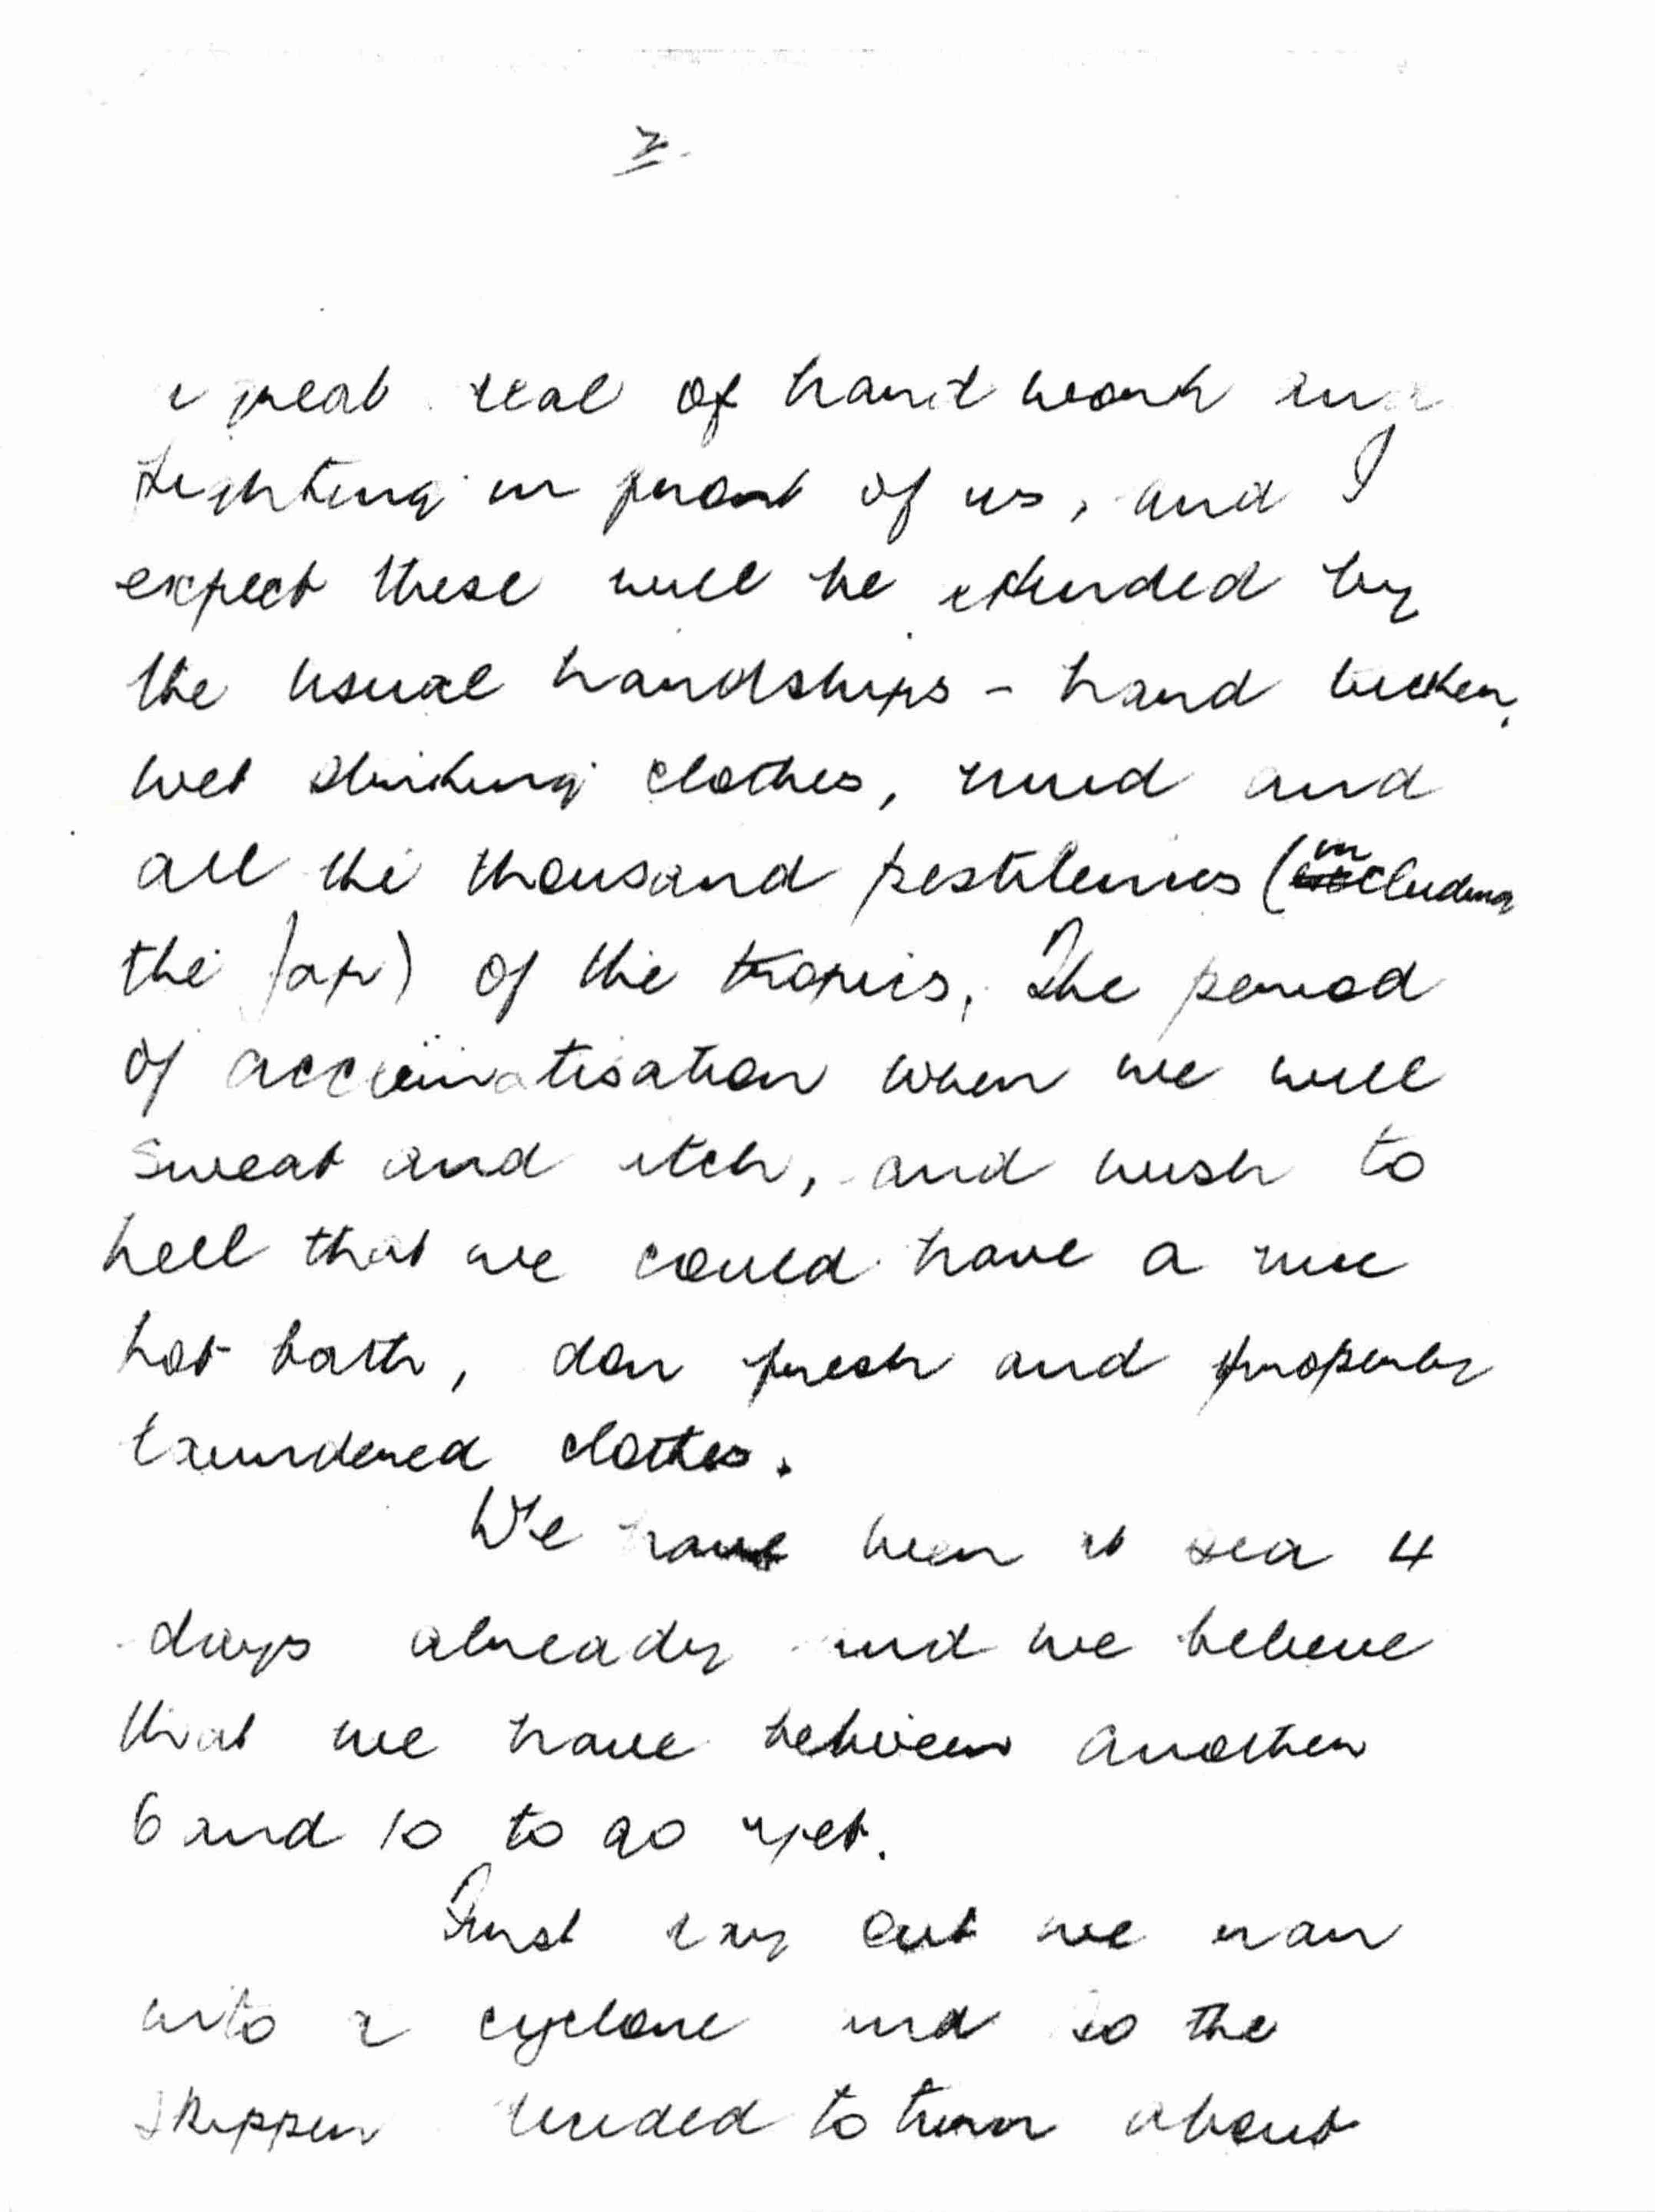 a great deal of hard work and
fighting in front of us, and I
expect these will be attended by
the usual hardships - hard tucker,
wet stinking clothes, mud and
all the thousand pestilences (including
the Jap) of the tropics. The period
of acclimatisation when we will
sweat and itch, and wish to
hell that we could have a nice
hot bath, don fresh and properly
laundered clothes.
We have been at sea 4
days already and we believe
that we have between another
6 and 10 to go yet.
First day out we ran
into a cyclone and so the
skipper decided to turn about